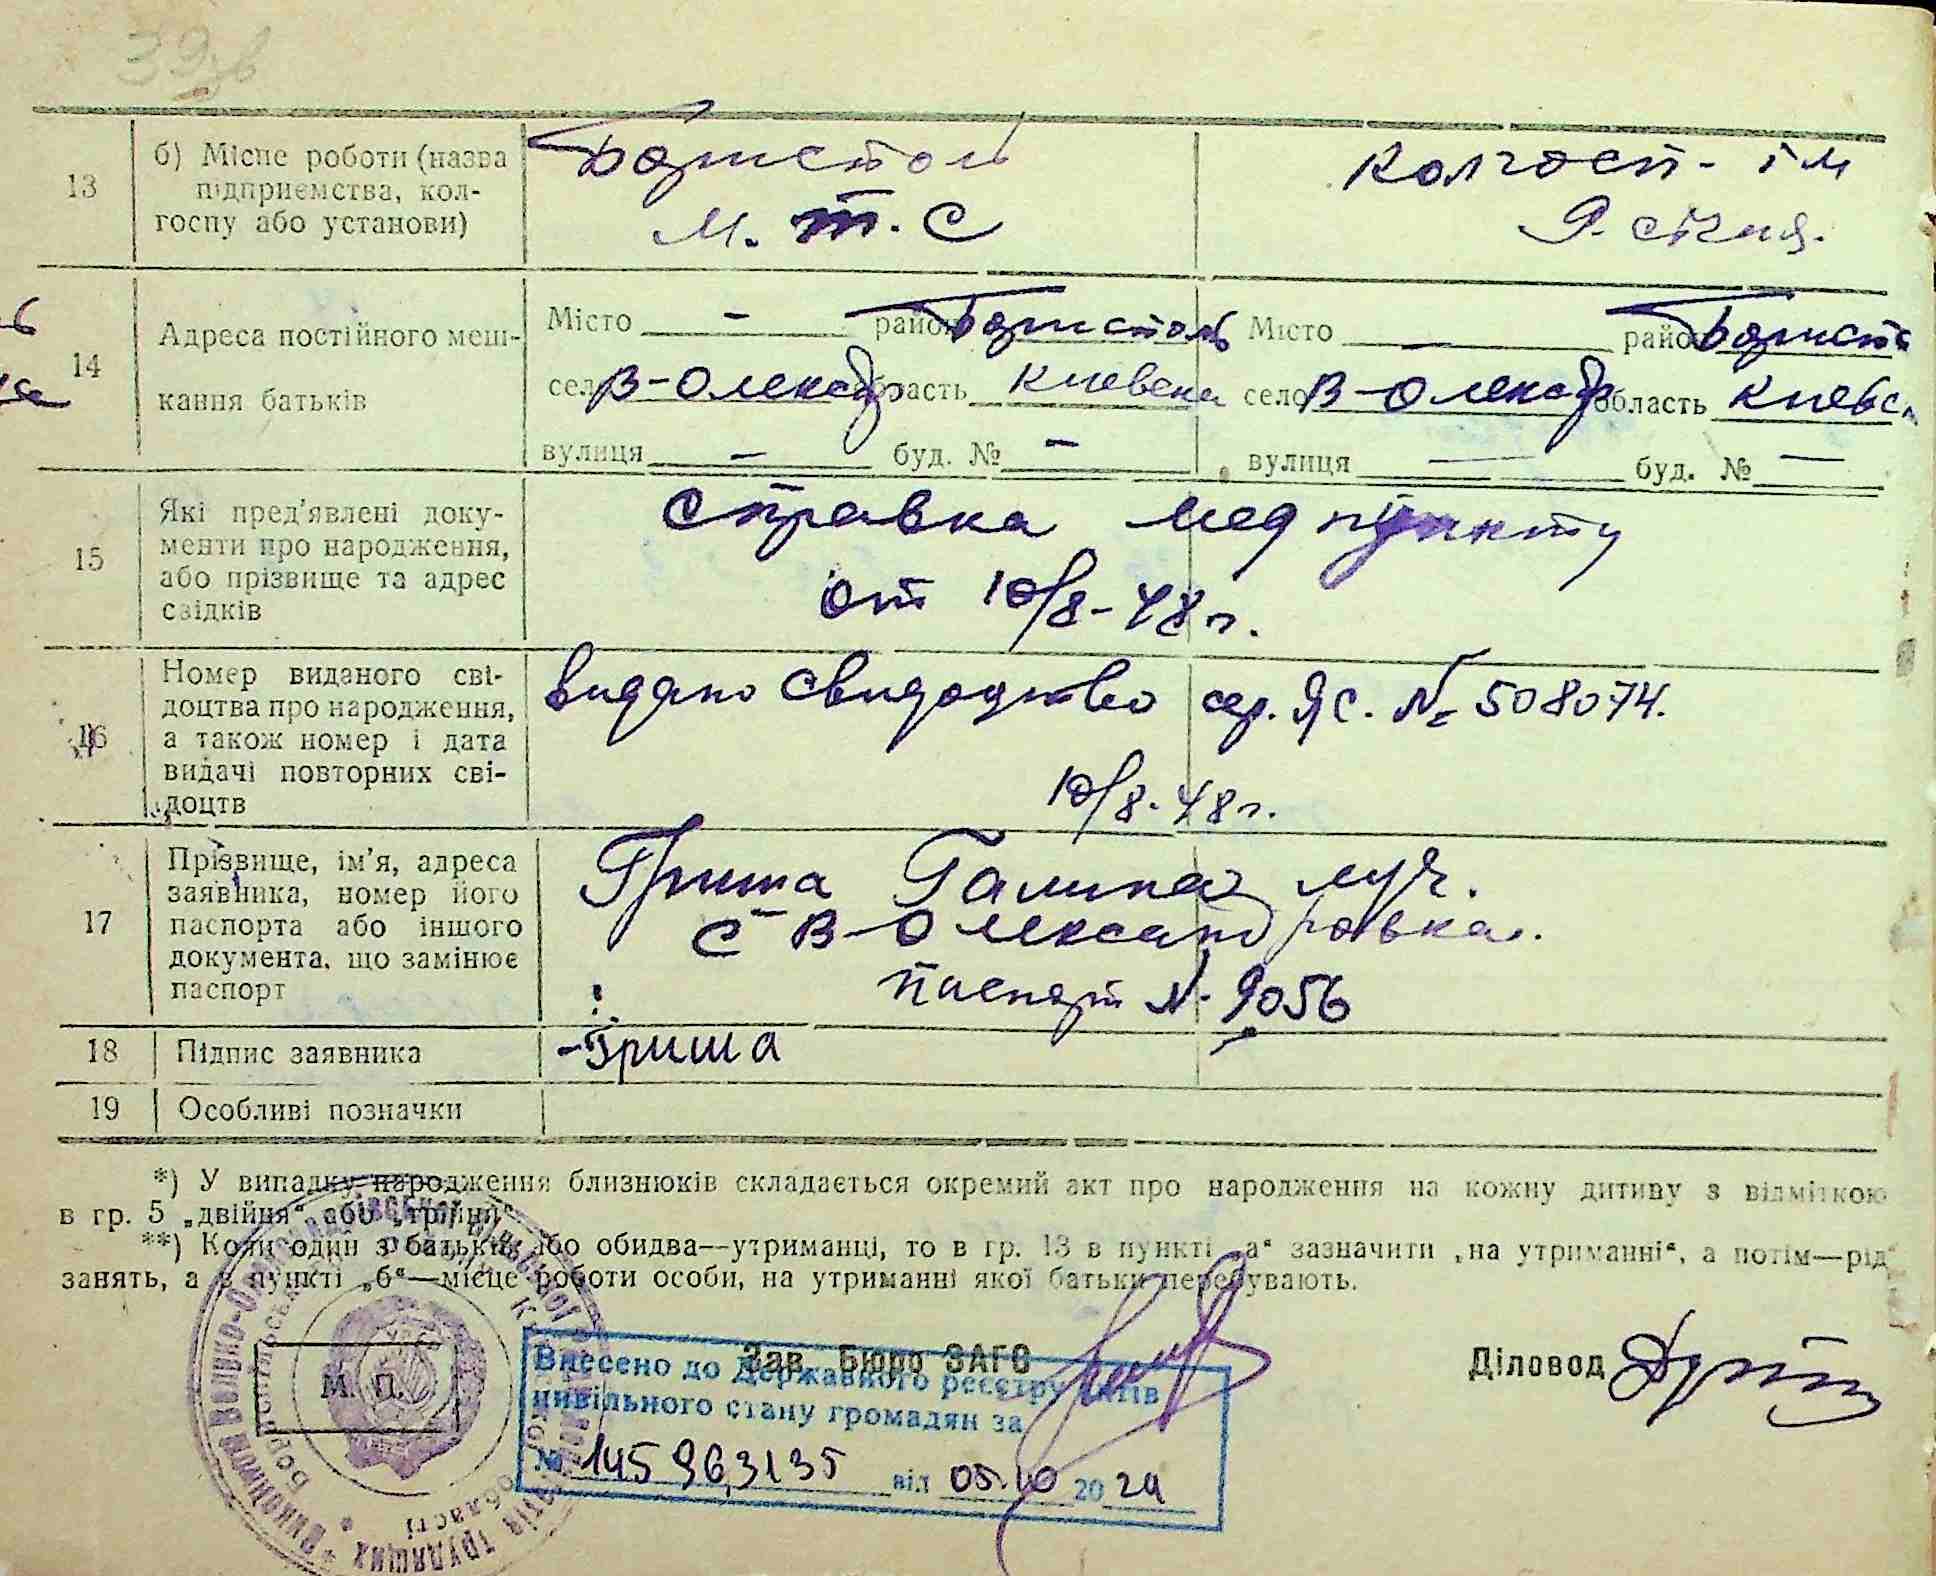 39зв
13
б) Місце роботи (назва
підприємства, кол-
госпу або установи)
м. т. с
колгосп - ім
9. січня.
14
Адреса постійного меш-
кання батьків
Місто - район Борисполь
село В-Олександ область Киевска
вулиця - буд. № -
Місто - район
село В-Олександ область Киевс
вулиця — буд. № —
15
Які пред'явлені доку-
менти про народження,
або прізвище та адрес
свідків
справка мед пункту
от 10/8-48 г.
16
Номер виданого сві-
доцтва про народження,
а також номер і дата
видачі повторних сві-
доцтв
видано свидоцтво сер. ЯС. № 508074.
10/8-48 г.
17
Прізвище, ім'я, адреса
заявника, номер його
паспорта або іншого
документа, що замінює
паспорт
Гриша Галина
с В-Олександровка.
паспорт № 9056
18
Підпис заявника
Гриша
19
Особливі позначки
*) У випадку народження близнюків складається окремий акт про народження на кожну дитину з відміткою
в гр. 5 „двійня“ або „трійня“.
**) Коли один з батьків або обидва—утриманці, то в гр. 13 в пункті „а“ зазначити „на утриманні“, а потім—рід
занять, а в пункті „б“—місце роботи особи, на утриманні якої батьки перебувають.
Зав. Бюро ЗАГС
Діловод
М. П.
Внесено до Державного реєстру актів
цивільного стану громадян за
№ від 05.10 20